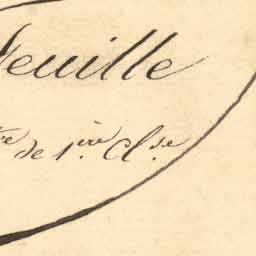 Feuille
re de 1.ère Cl.se